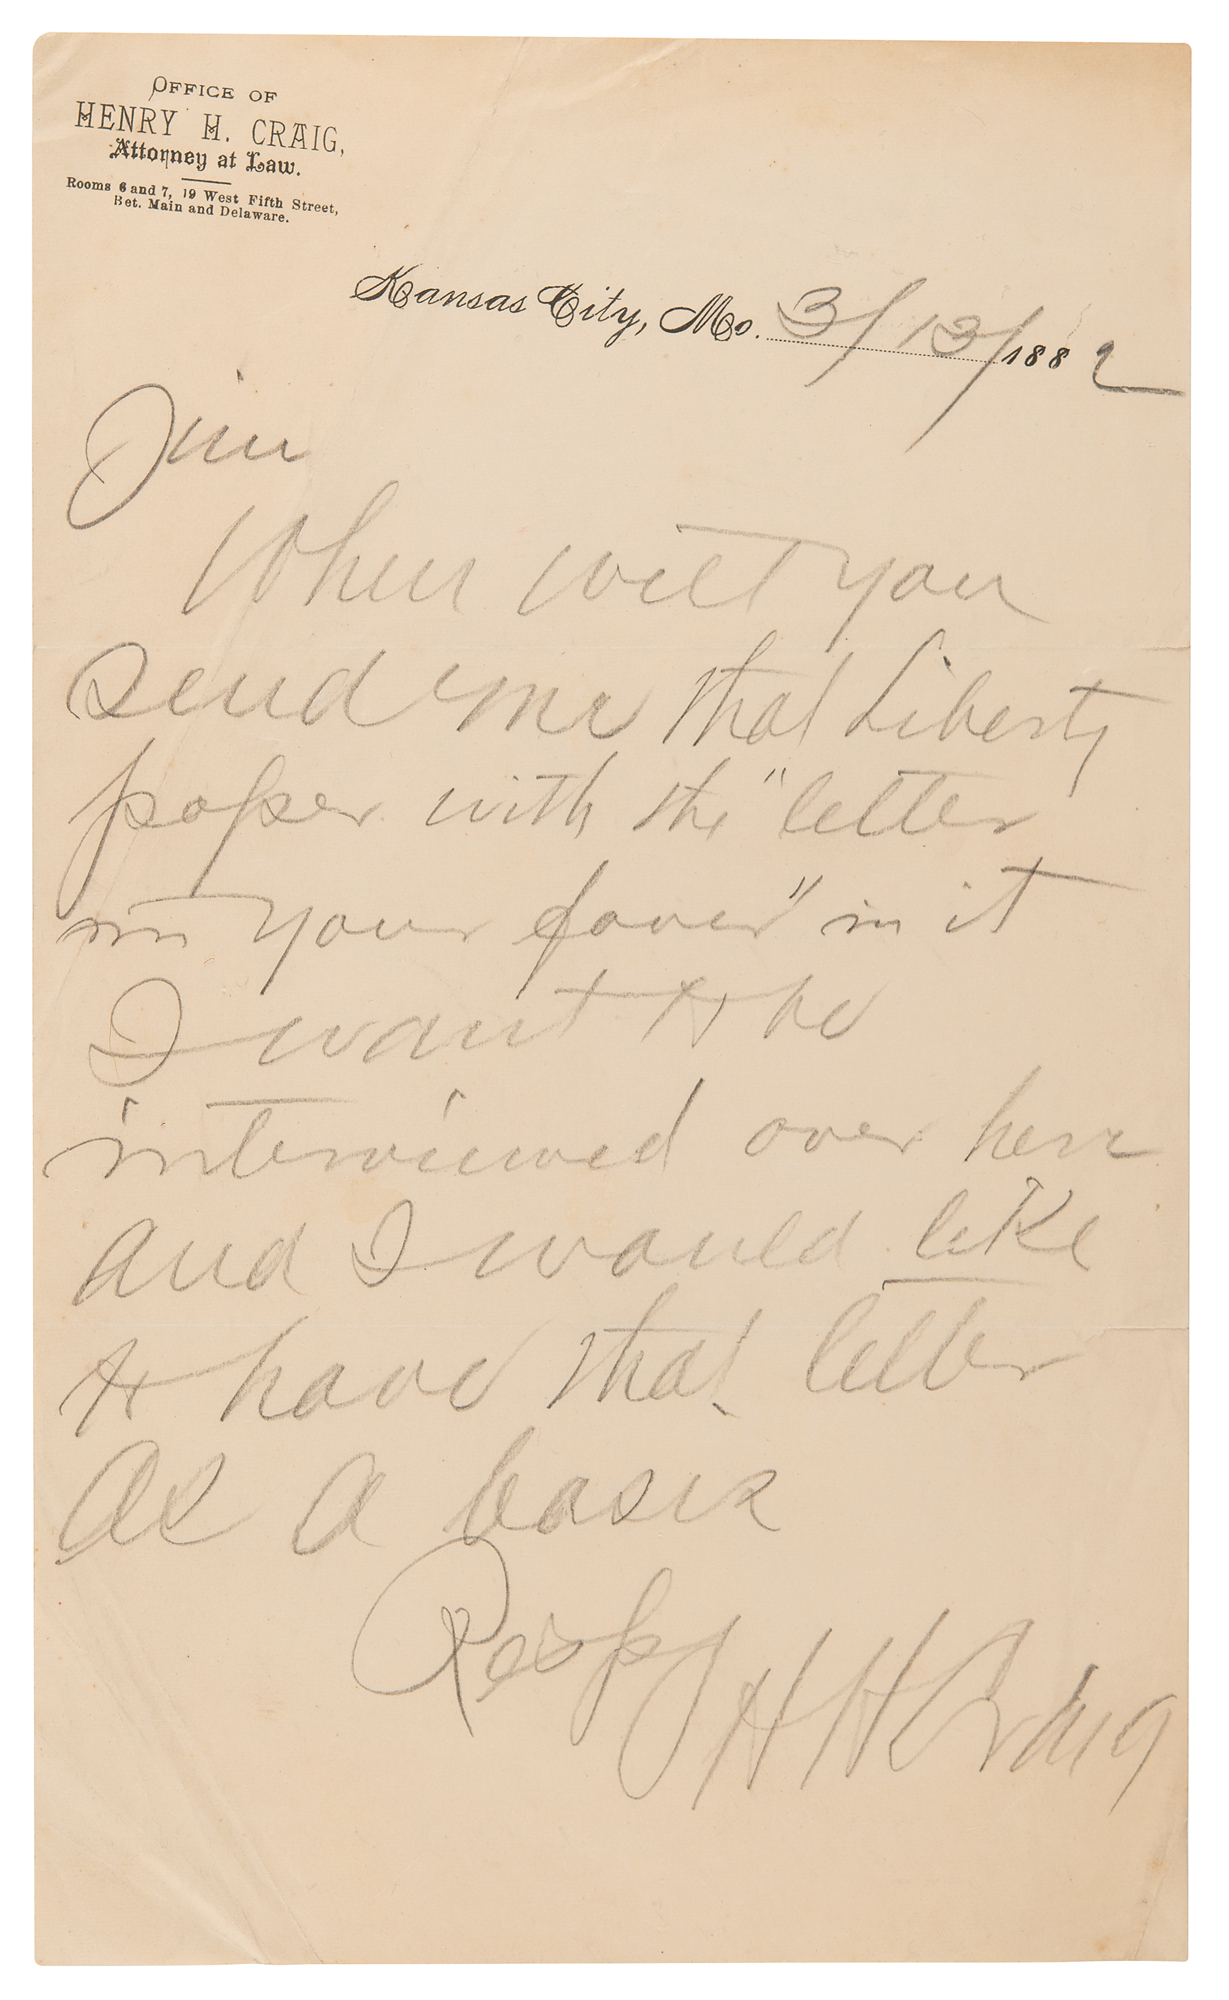 OFFICE OF
HENRY H. CRAIG,
Attorney at Law.
Rooms 6 and 7, 19 West Fifth Street,
Bet. Main and Delaware.
Kansas City, Mo. 3/13/1882
Jim
When will you
send me that Liberty
paper with the "letter
in your favor" in it
I want to be
interviewed over here
and I would like
to have that letter
as a basis
Resp
H H Craig